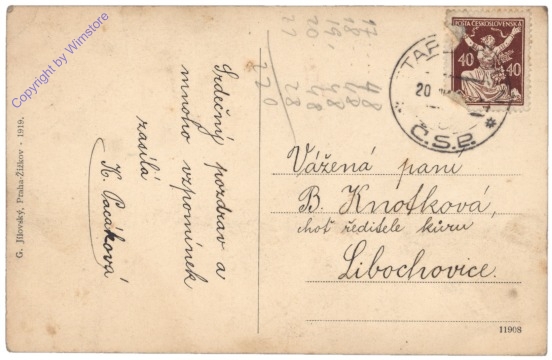 Copyright by Wimstore
G. Jílovský, Praha-Žižkov - 1919.
Srdečný pozdrav a
mnoho vzpomínek
zasílá
K. Pacáková
POSTA ČESKOSLOVENSKÁ
40 40
TAB
20
Č.S.P.
Vážená paní
B. Knotková,
choť ředitele kůru
Libochovice.
11908